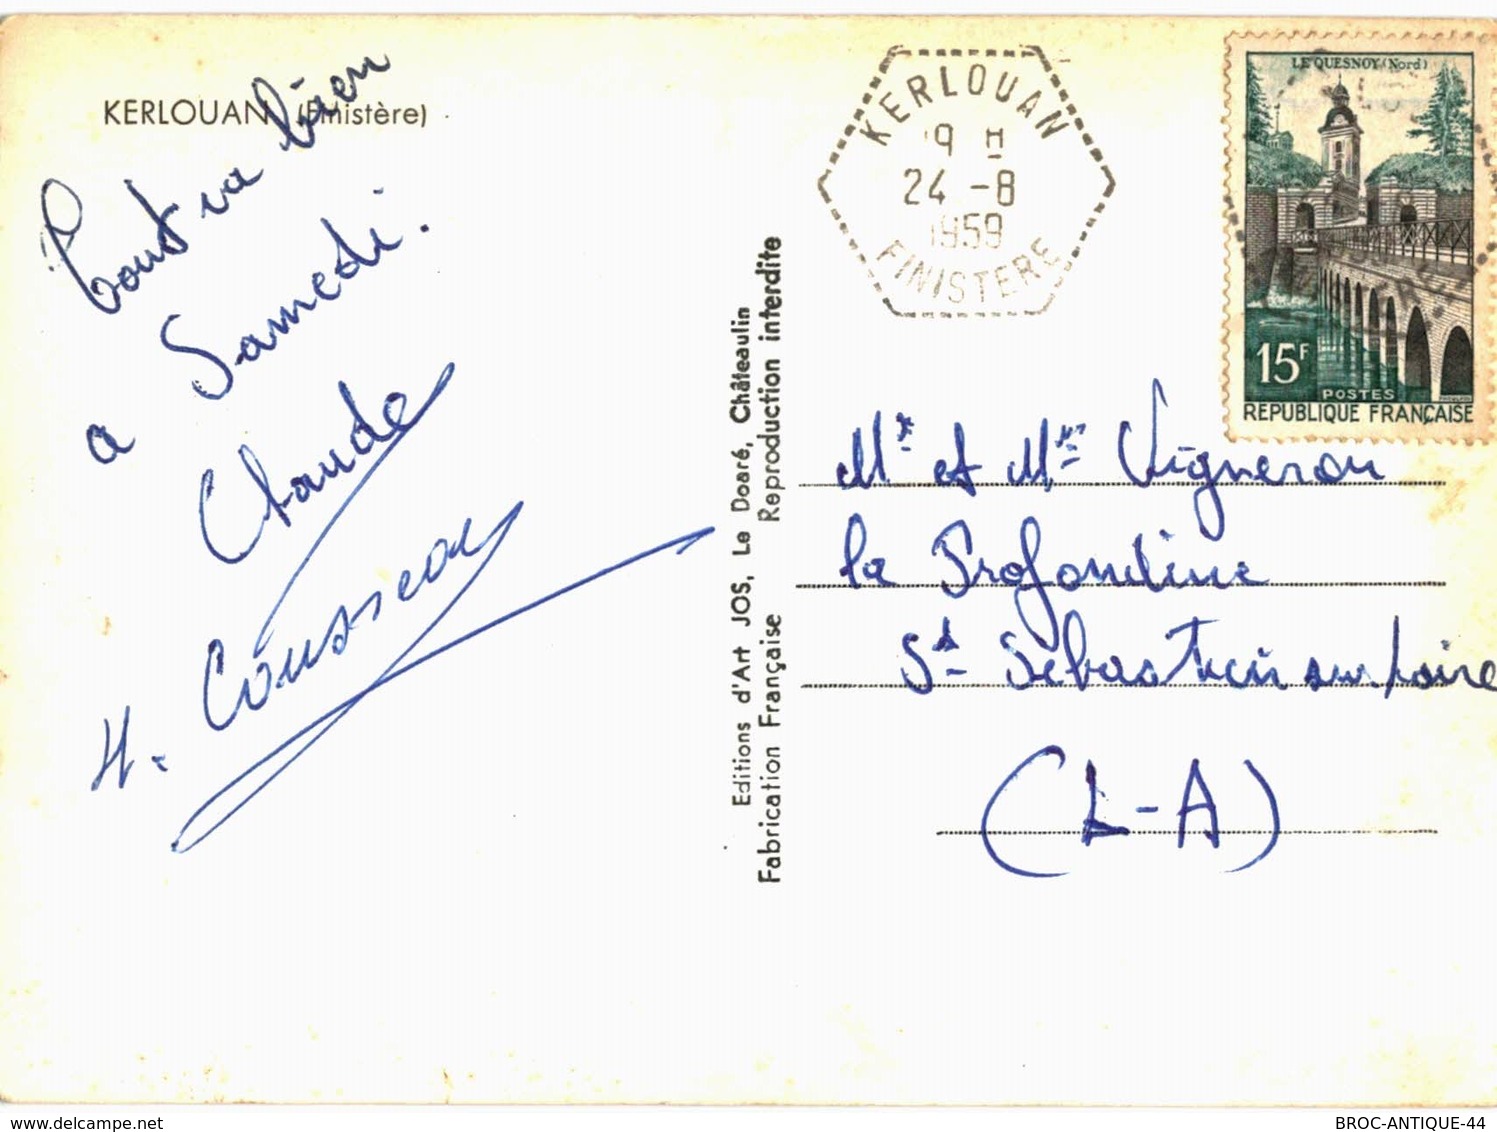 KERLOUAN (Finistère)
Tout va bien
a Samedi.
Claude
H. Cousseau
Editions d'Art JOS, Le Doaré, Châteaulin
Fabrication Française Reproduction interdite
KERLOUAN
9 H
24 -8
1959
FINISTERE
LE QUESNOY (Nord)
15F
POSTES
REPUBLIQUE FRANÇAISE
Mr et Mme Vigneron
la Profondine
St Sébastien sur Loire
(L-A)
delcampe.net
BROC-ANTIQUE-44